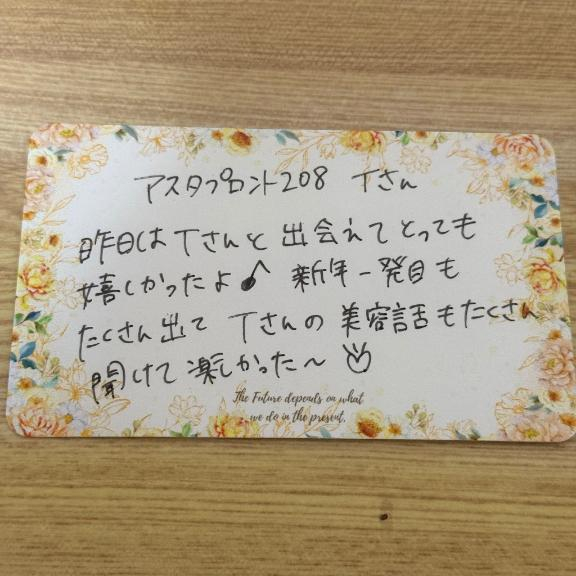 アスタプロント208 Tさん
昨日はTさんと出会えてとっても
嬉しかったよ♪ 新年一発目も
たくさん出て Tさんの美容話もたくさん
聞けて楽しかった〜
The Future depends on what
we do in the present.